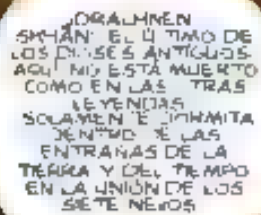 EL ÚLTIMO DE
LOS DIOSES ANTIGUOS
AQUÍ NO ESTÁ MUERTO
COMO EN LAS OTRAS
LEYENDAS
SOLAMENTE DORMITA
DENTRO DE LAS
ENTRAÑAS DE LA
TIERRA Y DEL TIEMPO
EN LA UNIÓN DE LOS
SIETE